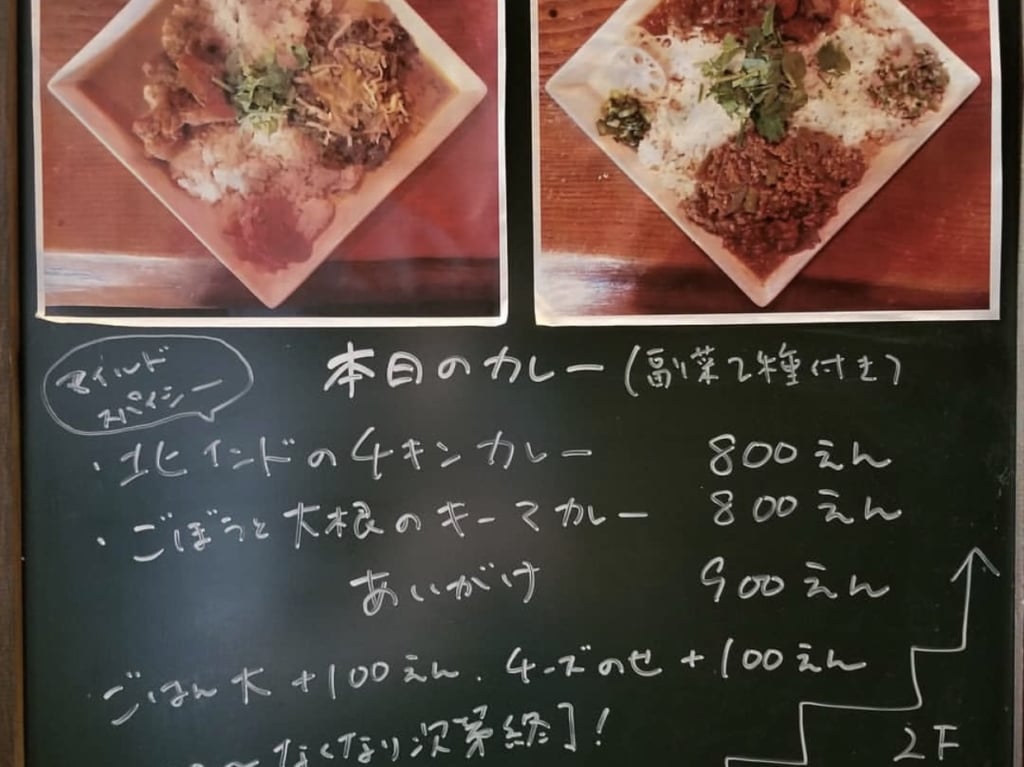 マイルド
スパイシー
本日のカレー(副菜2種付き)
・北インドのチキンカレー 800えん
・ごぼうと大根のキーマカレー 800えん
あいがけ 900えん
ごはん大+100えん、チーズのせ+100えん
なくなり次第終了!
2F